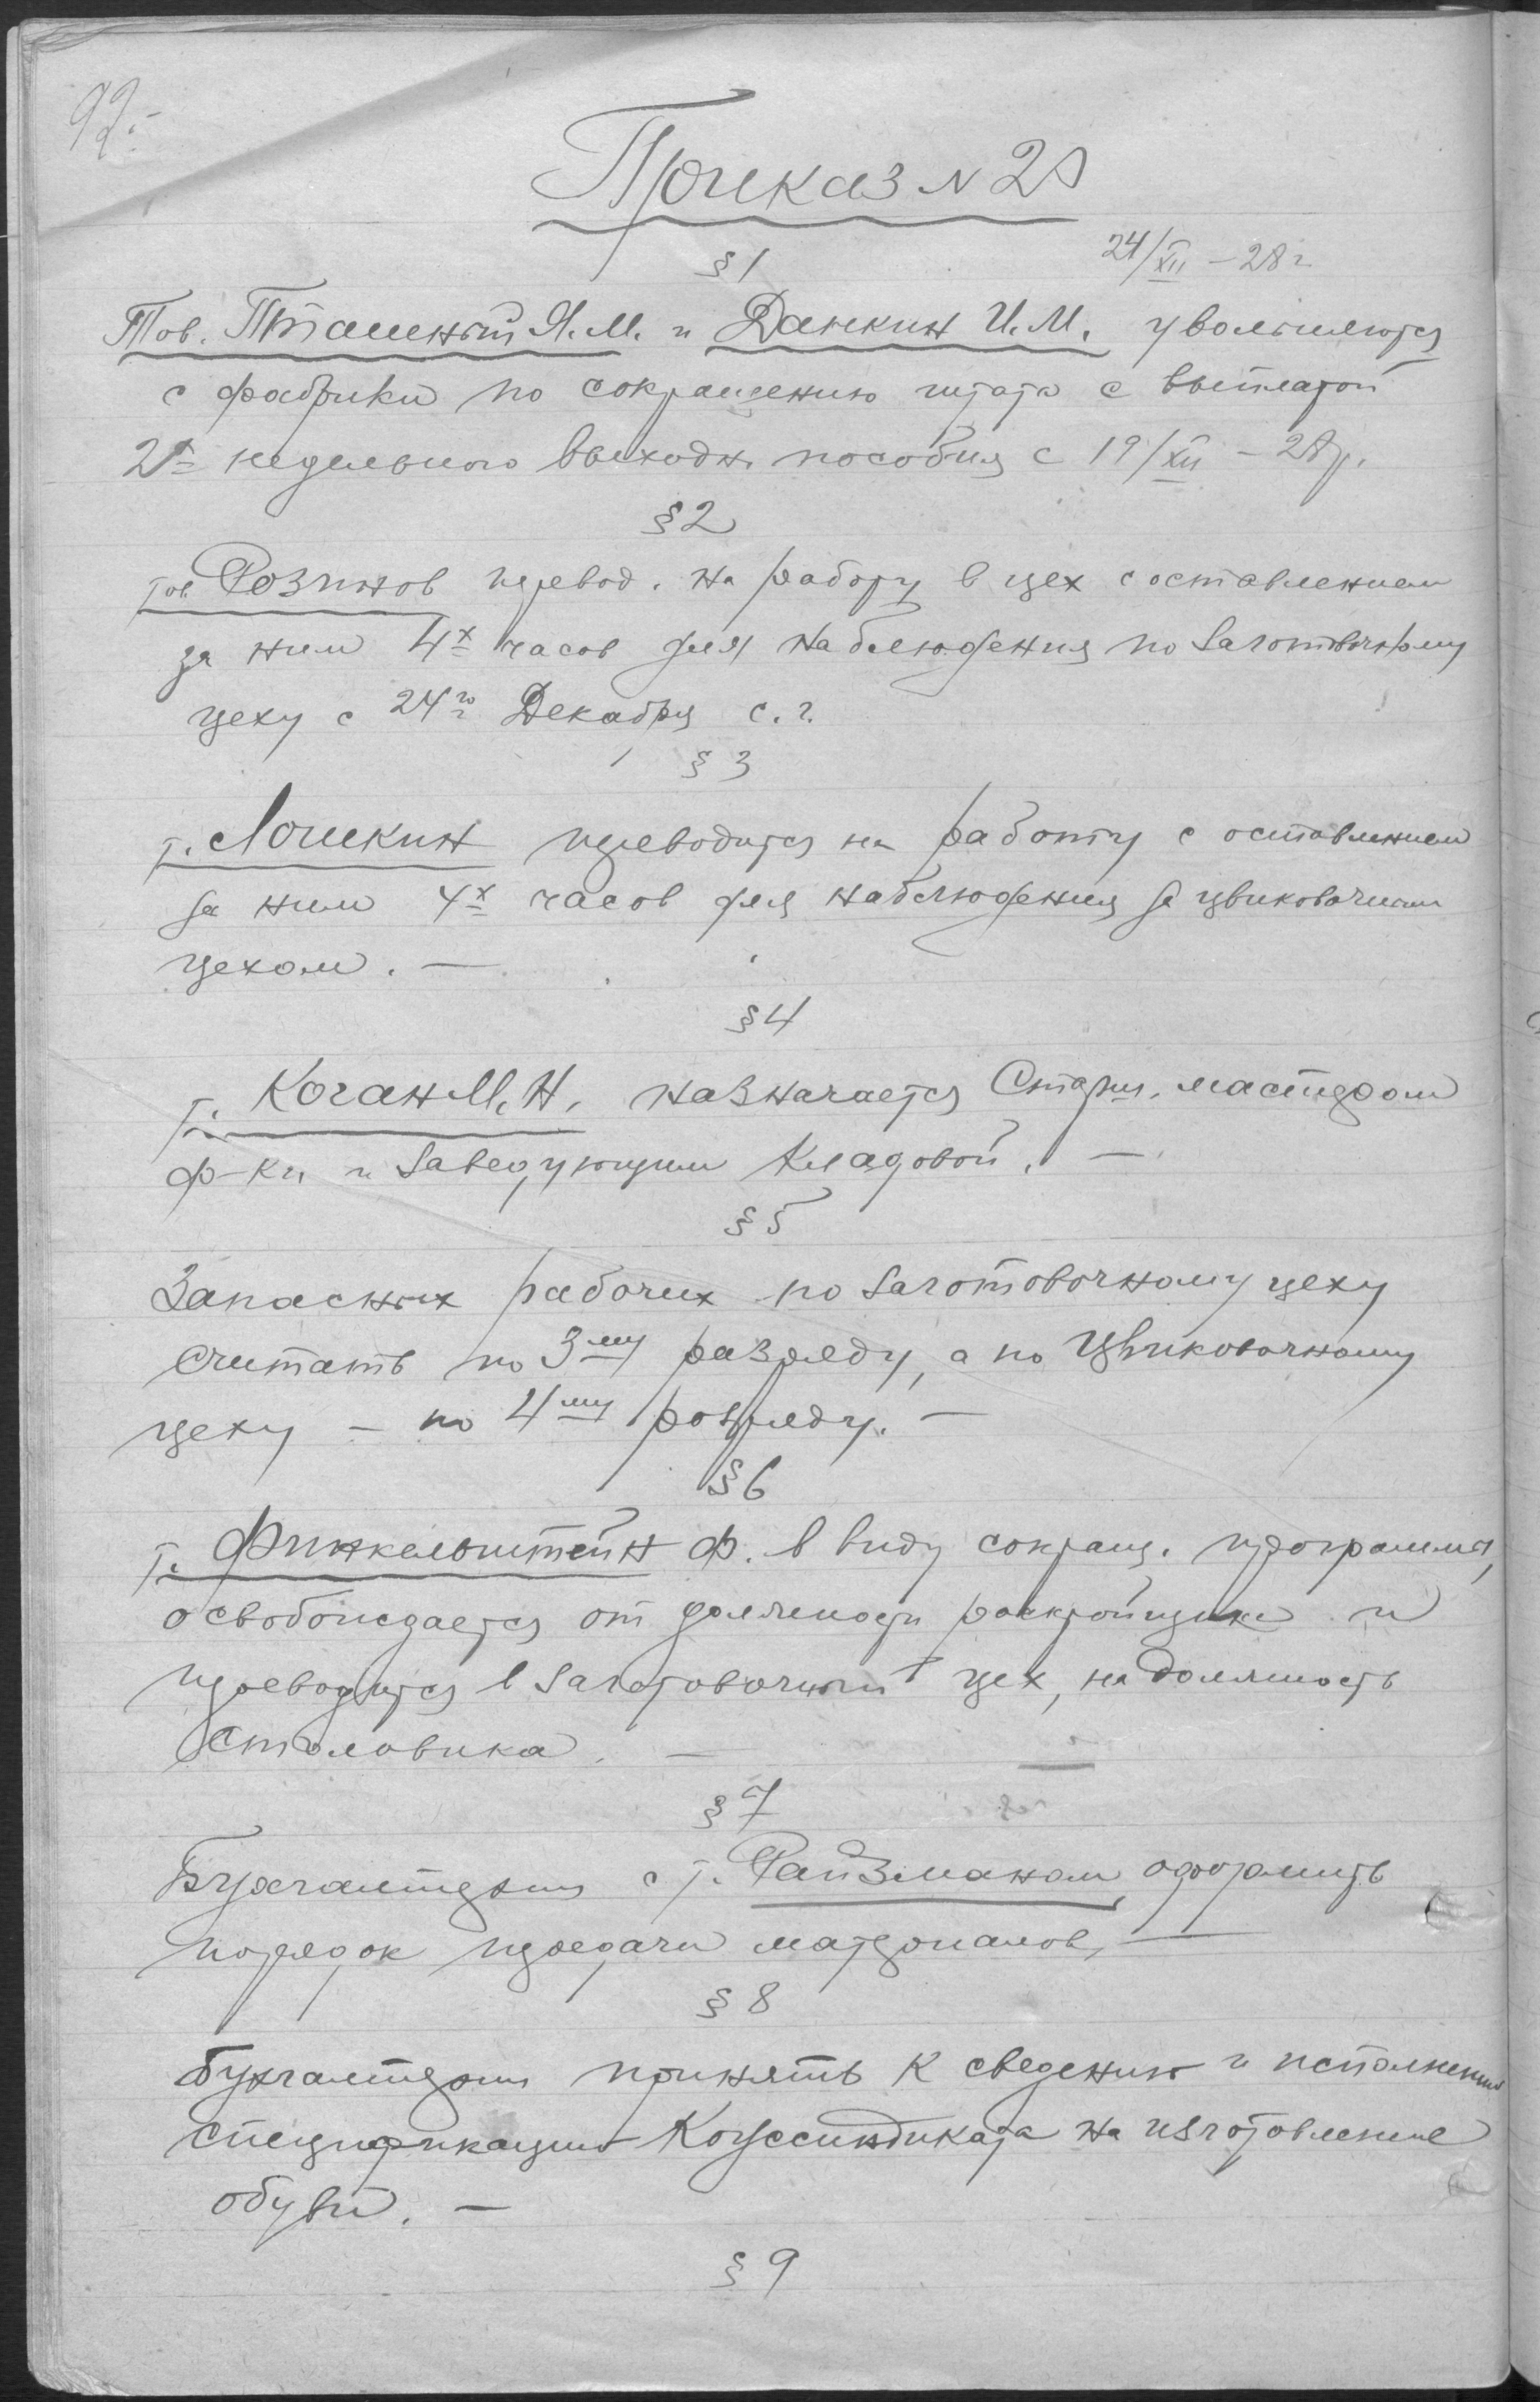 92.-
Приказ № 20
§ 1
24/XII - 28 г
Тов. Пташный Я.М. и Данкин И.М. увольняются
с фабрики по сокращению штата с выплатой
2х недельного выходн. пособия с 19/XII - 28 г.
§ 2
тов Розинов перевод. на работу в цех с оставлением
за ним 4х часов для наблюдения по заготовочному
цеху с 24го Декабря с.г.
§ 3
т. Лошкин переводится на работу с оставлением
за ним 4х часов для наблюдения за цвиковочным
цехом. —
§ 4
т. Коган М.Н. назначается Старш. мастером
ф-ки и заведующим кладовой. —
§ 5
Запасных рабочих по заготовочному цеху
считать по 3му разряду, а по Цвиковочному
цеху — по 4му розряду. —
§ 6
т. Финкельштейн Ф. в виду сокращ. программы,
освобождается от должности раскройщика и
переводится в заготовочный цех, на должность
столовика. —
§ 7
Бухгалтерии с т. Райзманом, оформить
порядок передачи матерьалов, —
§ 8
Бухгалтерии принять к сведению и исполнению
спецификацию Кожсиндиката на изготовление
обуви. —
§ 9